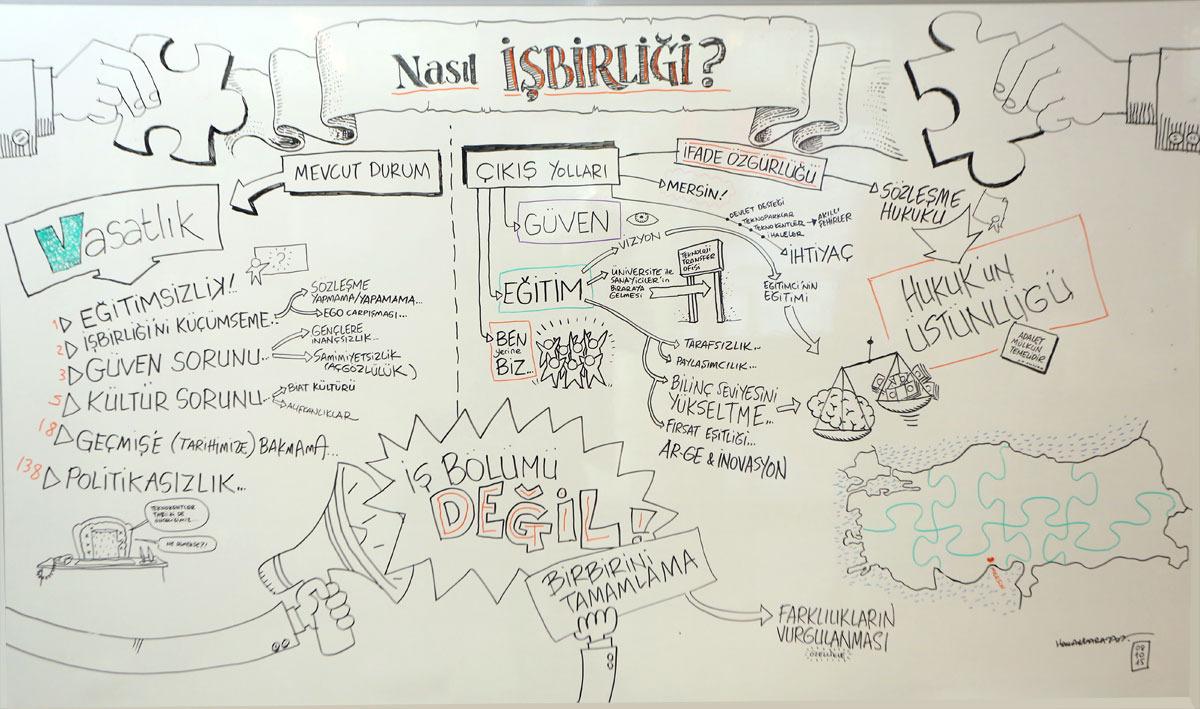 Nasıl İŞBİRLİĞİ?
MEVCUT DURUM
Vasatlık
?
1 EĞİTİMSİZLİK!!
2 İŞBİRLİĞİ'Nİ KÜÇÜMSEME...
SÖZLEŞME
YAPMAMA/YAPAMAMA...
EGO ÇARPIŞMASI...
3 GÜVEN SORUNU...
GENÇLERE
İNANÇSIZLIK...
SAMİMİYETSİZLİK
(AÇGÖZLÜLÜK)
5 KÜLTÜR SORUNU...
BİAT KÜLTÜRÜ
18 GEÇMİŞ'E (TARİHİMİZE) BAKMAMA...
138 POLİTİKASIZLIK...
TEKNOKENTLER
NE DEMEKSE?!
ÇIKIŞ YOLLARI
İFADE ÖZGÜRLÜĞÜ
MERSİN!
SÖZLEŞME
HUKUKU
GÜVEN
DEVLET DESTEĞİ
TEKNOPARKLAR
TEKNOKENTLER
İHALELER
AKILLI
ŞEHİRLER
İHTİYAÇ
EĞİTİM
VİZYON
ÜNİVERSİTE ile
SANAYİCİLER'in
BİRARAYA
GELMESİ
TEKNOLOJİ
TRANSFER
OFİSİ
EĞİTİMCİ'NİN
EĞİTİMİ
HUKUK'UN
ÜSTÜNLÜĞÜ
ADALET
MÜLKÜN
TEMELİDİR
BEN
yerine
BİZ...
TARAFSIZLIK...
PAYLAŞIMCILIK...
BİLİNÇ SEVİYESİNİ
YÜKSELTME...
FIRSAT EŞİTLİĞİ...
AR-GE & İNOVASYON
İŞ BÖLÜMÜ
DEĞİL!
BİRBİRİNİ
TAMAMLAMA
FARKLILIKLARIN
VURGULANMASI
ÖZELLİKLE
MERSİN